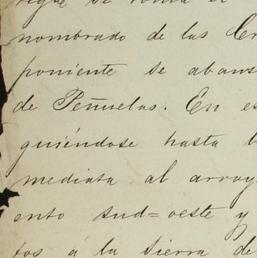 nombrado de las Cr
poniente se aban
de Peñuelas. En es
guiéndose hasta l
mediata al arroy
ento sud=oeste y
tos á la Sierra de